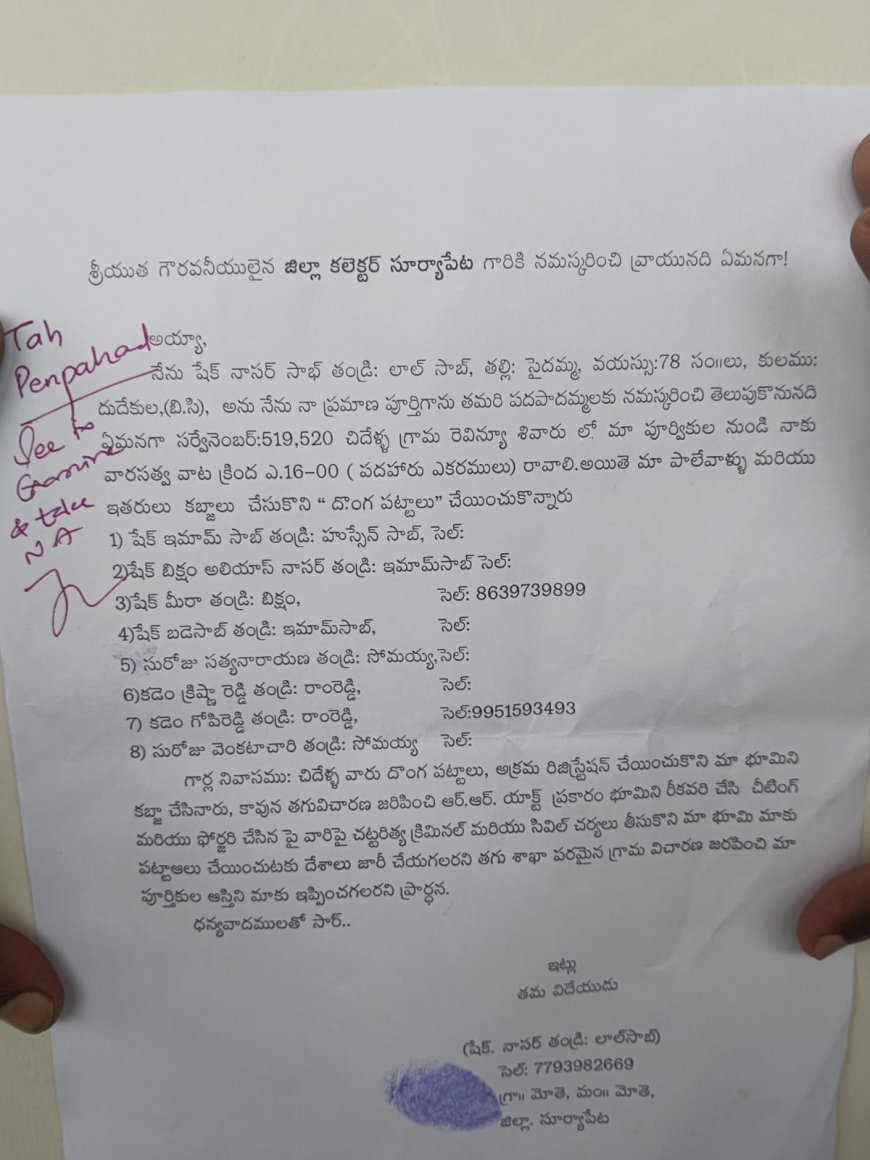 శ్రీయుత గౌరవనీయులైన జిల్లా కలెక్టర్ సూర్యాపేట గారికి నమస్కరించి వ్రాయునది ఏమనగా!
Tah
Penpahad
See to
& take
NA
అయ్యా,
నేను షేక్ నాసర్ సాభ్ తండ్రి: లాల్ సాబ్, తల్లి: సైదమ్మ, వయస్సు:78 సం॥లు, కులము:
దుదేకుల,(బి.సి), అను నేను నా ప్రమాణ పూర్తిగాను తమరి పదపాదమ్మలకు నమస్కరించి తెలుపుకొనునది
ఏమనగా సర్వేనెంబర్:519,520 చిదేళ్ళ గ్రామ రెవిన్యూ శివారు లో మా పూర్వికుల నుండి నాకు
వారసత్వ వాట క్రింద ఎ.16-00 ( పదహారు ఎకరములు) రావాలి.అయితె మా పాలేవాళ్ళు మరియు
ఇతరులు కబ్జాలు చేసుకొని “ దొంగ పట్టాలు” చేయించుకొన్నారు
1) షేక్ ఇమామ్ సాబ్ తండ్రి: హుస్సేన్ సాబ్, సెల్:
2)షేక్ బిక్షం అలియాస్ నాసర్ తండ్రి: ఇమామ్‌సాబ్ సెల్:
3)షేక్ మీరా తండ్రి: బిక్షం, సెల్: 8639739899
4)షేక్ బడెసాబ్ తండ్రి: ఇమామ్‌సాబ్, సెల్:
5) సురోజు సత్యనారాయణ తండ్రి: సోమయ్య,సెల్:
6)కడెం క్రిష్ణా రెడ్డి తండ్రి: రాంరెడ్డి, సెల్:
7) కడెం గోపిరెడ్డి తండ్రి: రాంరెడ్డి, సెల్:9951593493
8) సురోజు వెంకటాచారి తండ్రి: సోమయ్య సెల్:
గార్ల నివాసము: చిదేళ్ళ వారు దొంగ పట్టాలు, అక్రమ రిజిస్ట్రేషన్ చేయించుకొని మా భూమిని
కబ్జా చేసినారు, కావున తగువిచారణ జరిపించి ఆర్.ఆర్. యాక్ట్ ప్రకారం భూమిని రీకవరి చేసి చీటింగ్
మరియు ఫోర్జరి చేసిన పై వారిపై చట్టరిత్య క్రిమినల్ మరియు సివిల్ చర్యలు తీసుకొని మా భూమి మాకు
పట్టాఆలు చేయించుటకు దేశాలు జారీ చేయగలరని తగు శాఖా పరమైన గ్రామ విచారణ జరపించి మా
పూర్తికుల ఆస్తిని మాకు ఇప్పించగలరని ప్రార్ధన.
ధన్యవాదములతో సార్..
ఇట్లు
తమ విదేయుడు
(షేక్. నాసర్ తండ్రి: లాల్‌సాబ్)
సెల్: 7793982669
గ్రా॥ మోతె, మం॥ మోతె,
జిల్లా. సూర్యాపేట